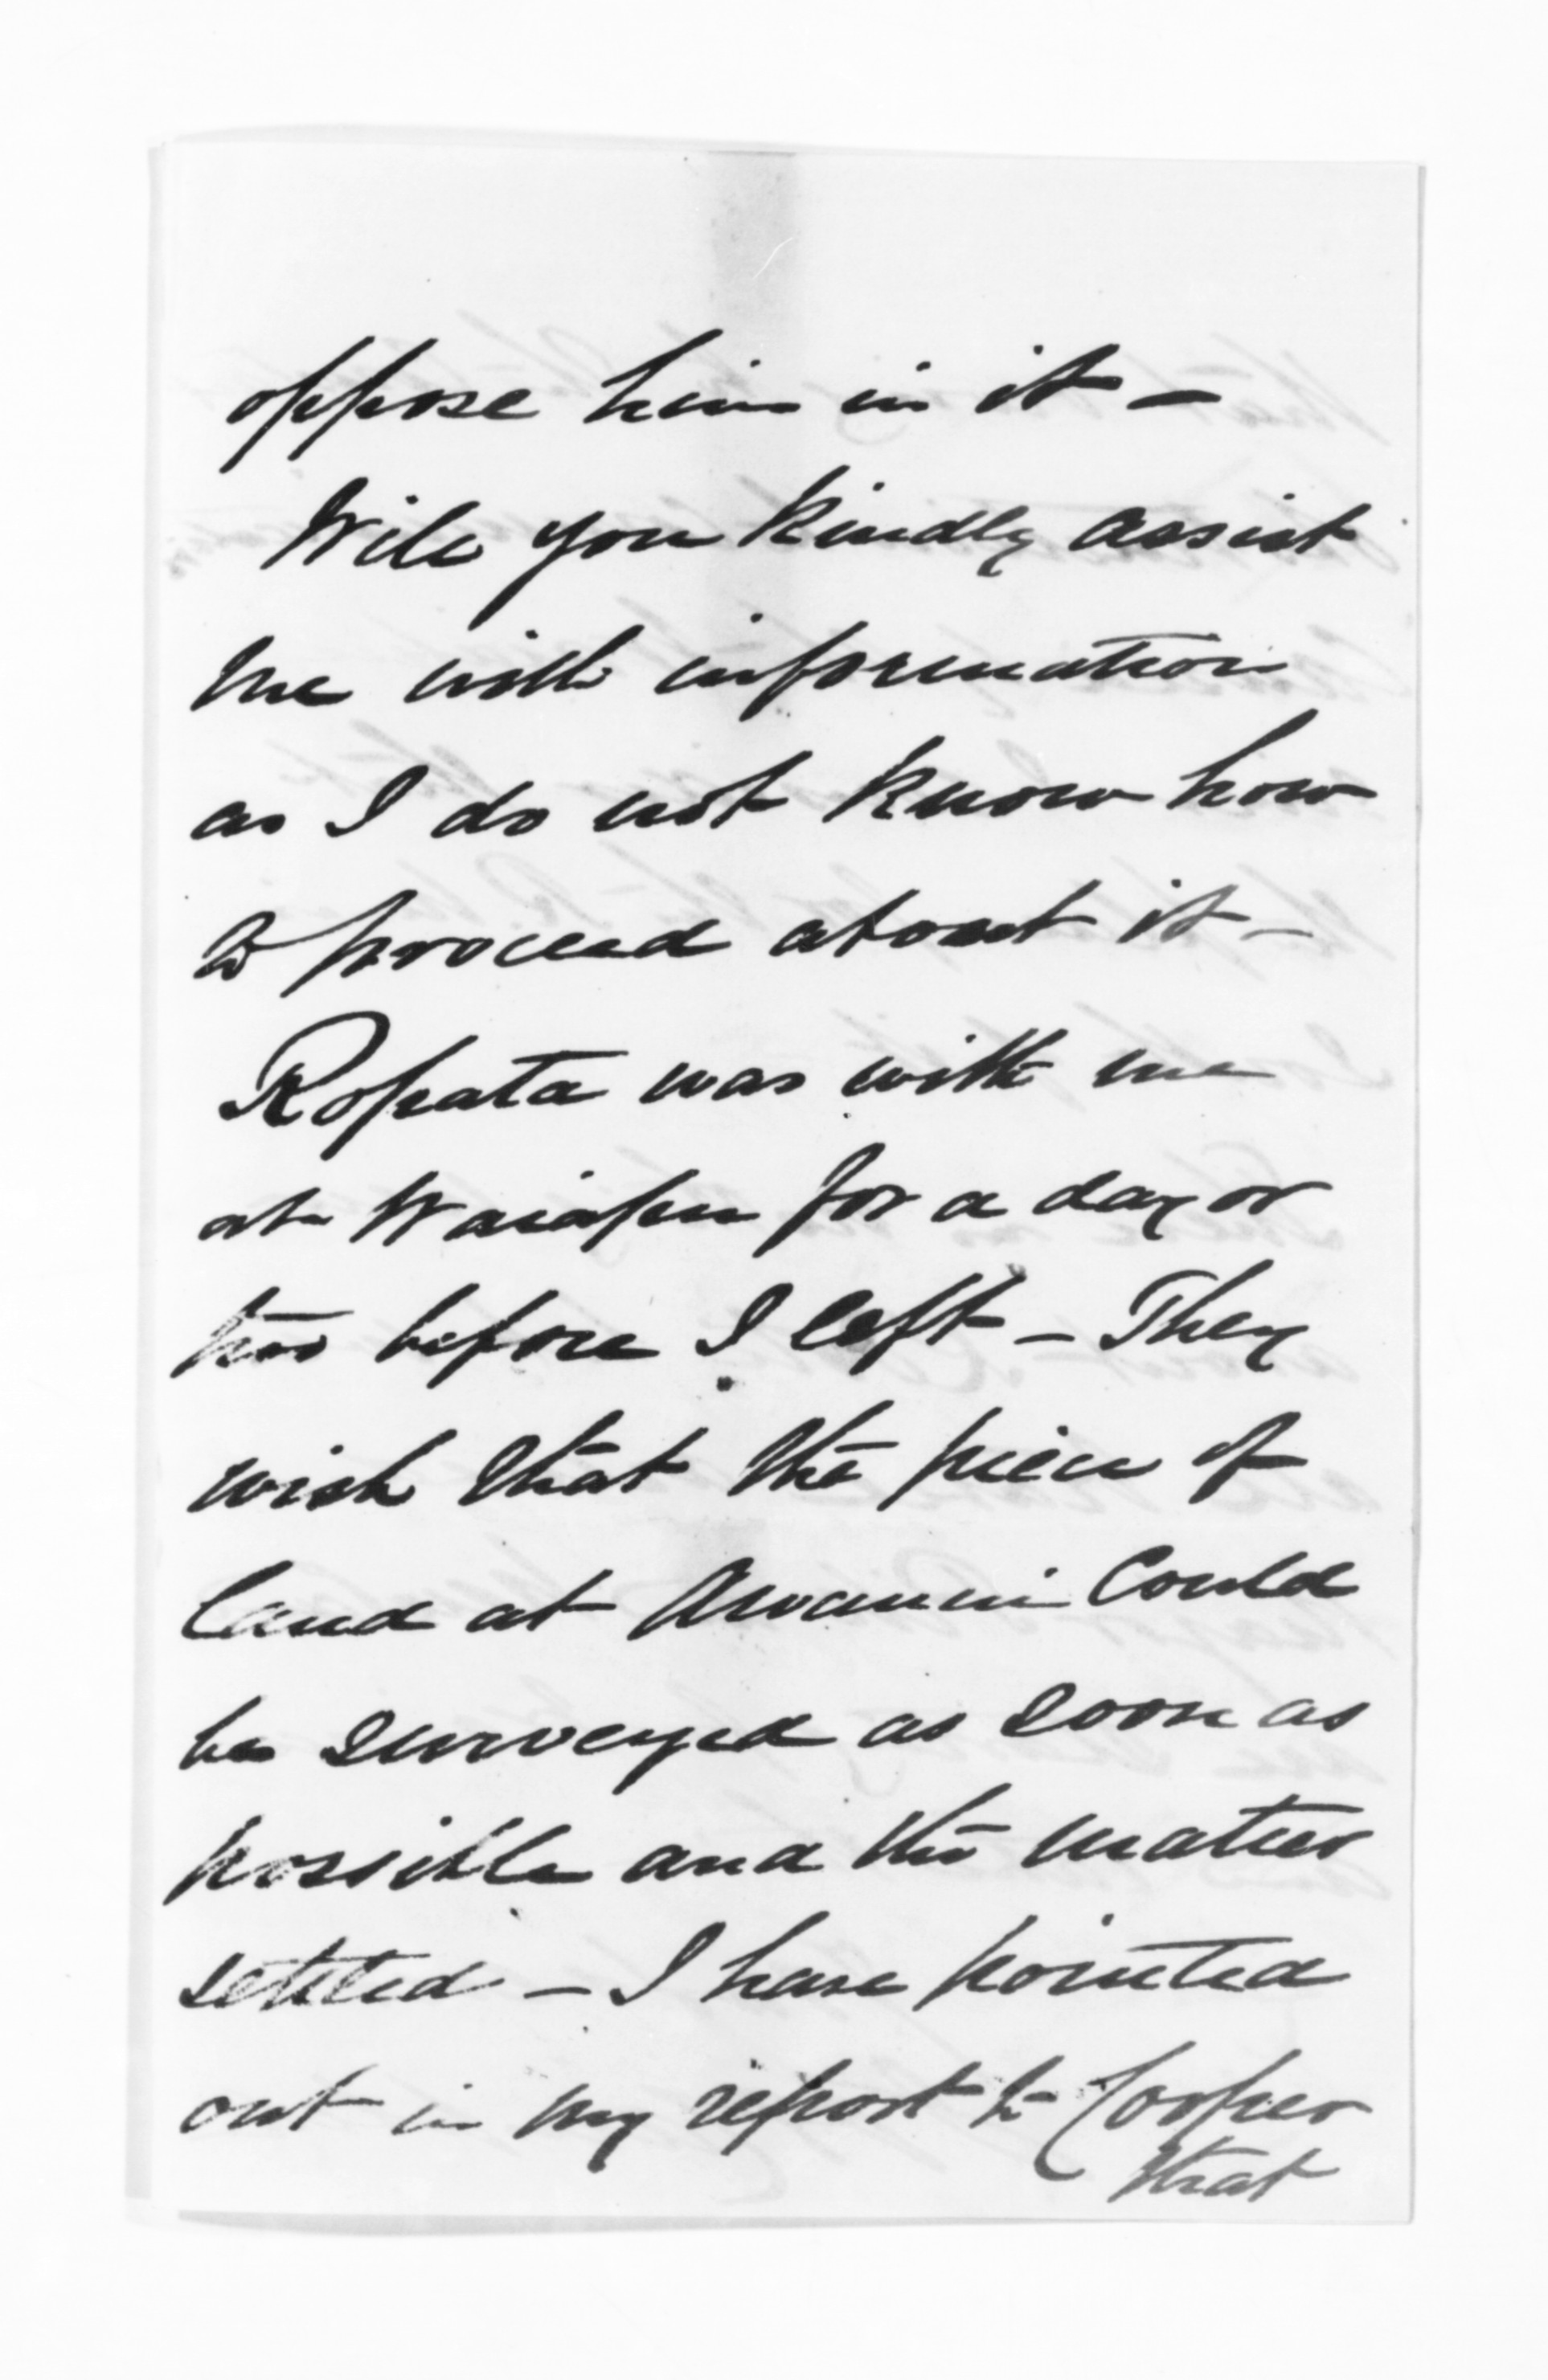 oppose him in it —
Will you kindly assist
me with information
as I do not know how
to proceed about it —
Ropata was with me
at Waiapu for a day or
two before I left — They
wish that the piece of
land at Awanui could
be surveyed as soon as
possible and the matter
settled — I have pointed
out in my report to Cooper
that